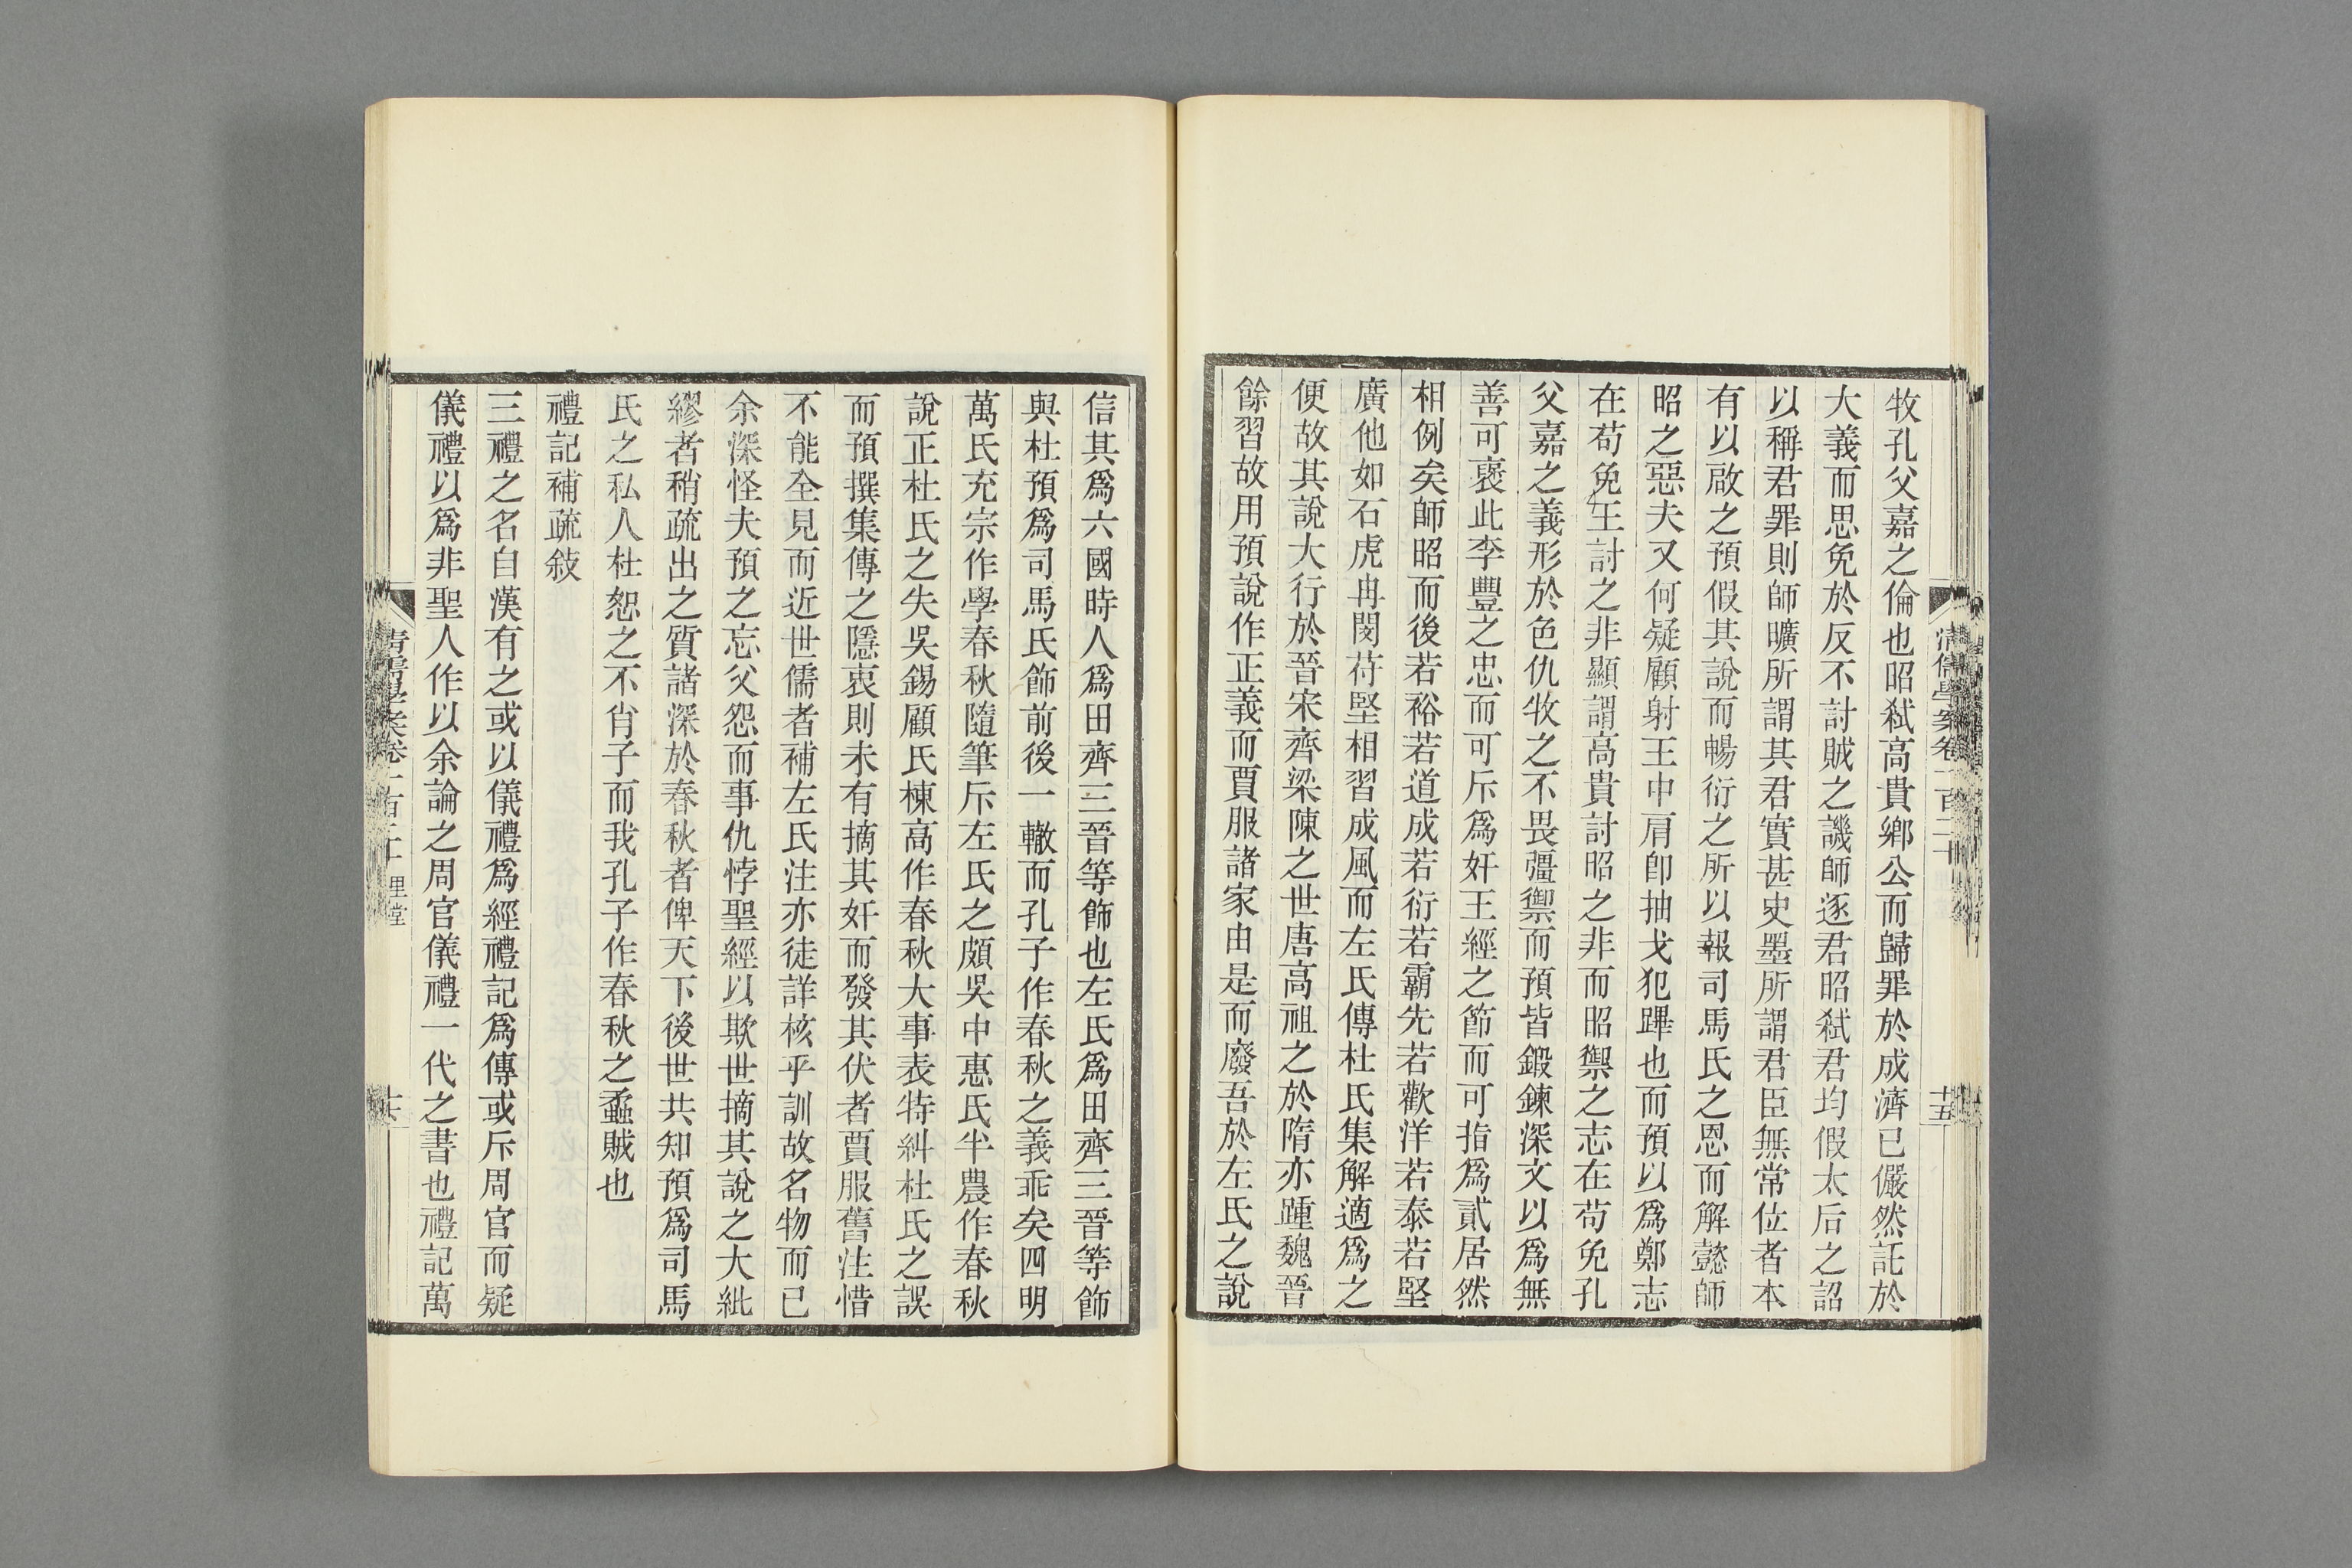 牧孔父嘉之倫也昭弒高貴鄉公而歸罪於成濟已儼然託於
大義而思免於反不討賊之譏師逐君昭弒君均假太后之詔
以稱君罪則師曠所謂其君實甚史墨所謂君臣無常位者本
有以啟之預假其說而暢衍之所以報司馬氏之恩而解懿師
昭之惡夫又何疑顧射王中肩卽抽戈犯蹕也而預以爲鄭志
在苟免王討之非顯謂高貴討昭之非而昭禦之志在苟免孔
父嘉之義形於色仇牧之不畏彊禦而預皆鍛鍊深文以爲無
善可襃此李豐之忠而可斥爲奸王經之節而可指爲貳居然
相例矣師昭而後若裕若道成若衍若霸先若歡洋若泰若堅
廣他如石虎冉閔苻堅相習成風而左氏傳杜氏集解適爲之
便故其說大行於晉宋齊梁陳之世唐高祖之於隋亦踵魏晉
餘習故用預說作正義而賈服諸家由是而廢吾於左氏之說
清儒學案卷一百二十
十五
信其爲六國時人爲田齊三晉等飾也左氏爲田齊三晉等飾
與杜預爲司馬氏飾前後一轍而孔子作春秋之義乖矣四明
萬氏充宗作學春秋隨筆斥左氏之頗吳中惠氏半農作春秋
說正杜氏之失吳錫顧氏棟高作春秋大事表特糾杜氏之誤
而預撰集傳之隱衷則未有摘其奸而發其伏者賈服舊注惜
不能全見而近世儒者補左氏注亦徒詳核乎訓故名物而已
余深怪夫預之忘父怨而事仇悖聖經以欺世摘其說之大紕
繆者稍疏出之質諸深於春秋者俾天下後世共知預爲司馬
氏之私人杜恕之不肖子而我孔子作春秋之蟊賊也
禮記補疏敍
三禮之名自漢有之或以儀禮爲經禮記爲傳或斥周官而疑
儀禮以爲非聖人作以余論之周官儀禮一代之書也禮記萬
清儒學案卷一百二十 里堂
十六